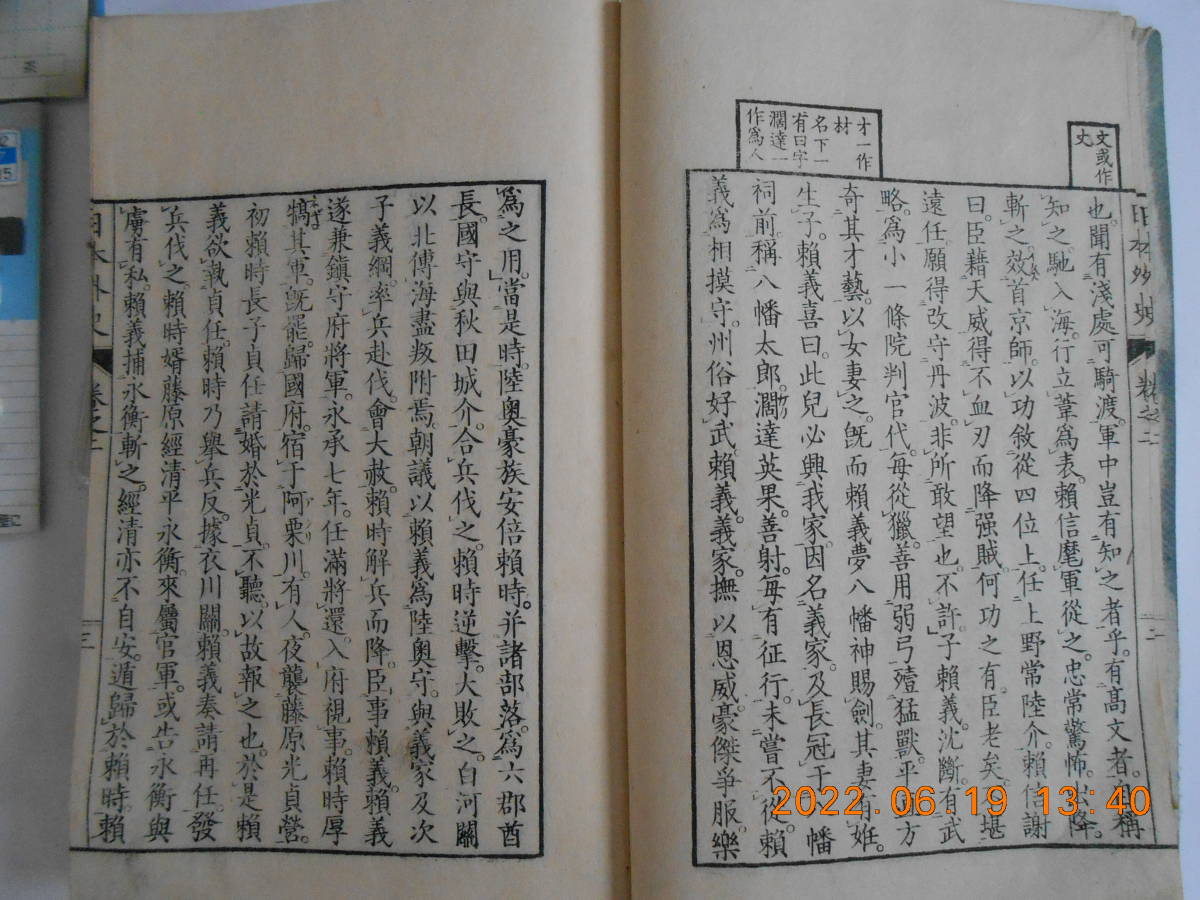 文或作
丈
日本外史
卷之二
二
也。聞有淺處可騎渡。軍中豈有知之者乎。有高文者。自稱
知之。馳入海。行立葦爲表。賴信麾軍從之。忠常驚怖。出降。
斬之。效首京師。以功敘從四位上。任上野常陸介。賴信謝
曰。臣藉天威。得不血刃而降强賊。何功之有。臣老矣。不堪
遠任。願得改守丹波。非所敢望也。不許。子賴義。沈斷。有武
略。爲小一條院判官代。每從獵。善用弱弓。殪猛獸。平直方
奇其才藝。以女妻之。既而賴義夢八幡神賜劍。其妻有姙。
生子。賴義喜曰。此兒必興我家。因名義家。及長。冠于八幡
祠前。稱八幡太郎。濶達英果。善射。每有征行。未嘗不從。賴
義爲相摸守。州俗好武。賴義義家。撫以恩威。豪傑爭服。樂
才一作
材
名下一
有曰字
濶達一
作爲人
爲之用。當是時。陸奧豪族安倍賴時。并諸部落。爲六郡酋
長。國守與秋田城介。合兵伐之。賴時逆擊。大敗之。白河關
以北傳海盡叛附焉。朝議以賴義爲陸奧守。與義家及次
子義綱。率兵赴伐。會大赦。賴時解兵而降。臣事賴義。賴義
遂兼鎭守府將軍。永承七年。任滿將還。入府視事。賴時厚
犒其軍。既罷。歸國府。宿于阿栗川。有人夜襲藤原光貞營。
初賴時長子貞任。請婚於光貞。不聽。以故報之也。於是賴
義欲執貞任。賴時乃舉兵反。據衣川關。賴義奏請再任。發
兵伐之。賴時婿藤原經清平永衡。來屬官軍。或告永衡與
虜有私。賴義捕永衡斬之。經清亦不自安。遁歸於賴時。賴
日本外史
卷之二
三
2022.06.19 13:40